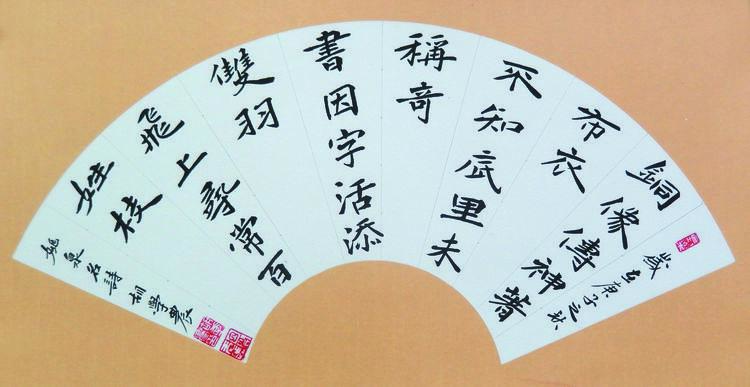 銅像傳神著
布衣
不知底里未
稱奇
書因字活添
雙羽
飛上尋常百
姓枝
歲在庚子之秋
姚泉名詩 胡學